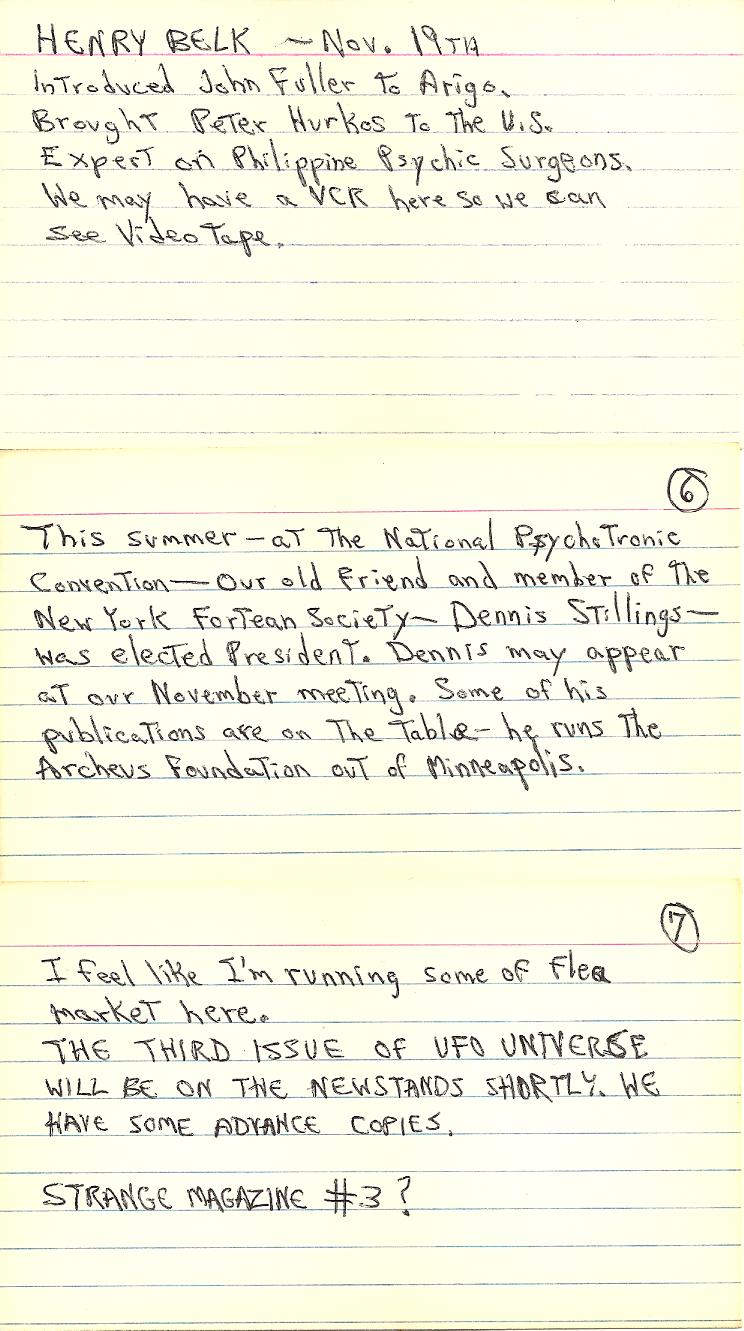 HENRY BELK — Nov. 19TH
Introduced John Fuller to Arigo.
Brought Peter Hurkos to the U.S.
Expert on Philippine Psychic Surgeons.
We may have a VCR here so we can
see Video Tape.
6
This summer — at the National Psychotronic
Convention — Our old friend and member of the
New York Fortean Society — Dennis Stillings —
was elected President. Dennis may appear
at our November meeting. Some of his
publications are on the table — he runs the
Archeus Foundation out of Minneapolis.
7
I feel like I'm running some of flea
market here.
THE THIRD ISSUE OF UFO UNIVERSE
WILL BE ON THE NEWSTANDS SHORTLY. WE
HAVE SOME ADVANCE COPIES.
STRANGE MAGAZINE #3?